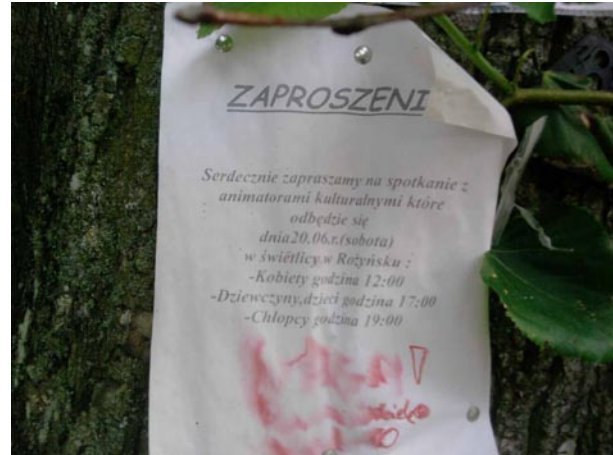 ZAPROSZENI
Serdecznie zapraszamy na spotkanie z
animatorami kulturalnymi które
odbędzie się
dnia20.06.r.(sobota)
w świetlicy w Rożyńsku :
-Kobiety godzina 12:00
-Dziewczyny,dzieci godzina 17:00
-Chłopcy godzina 19:00